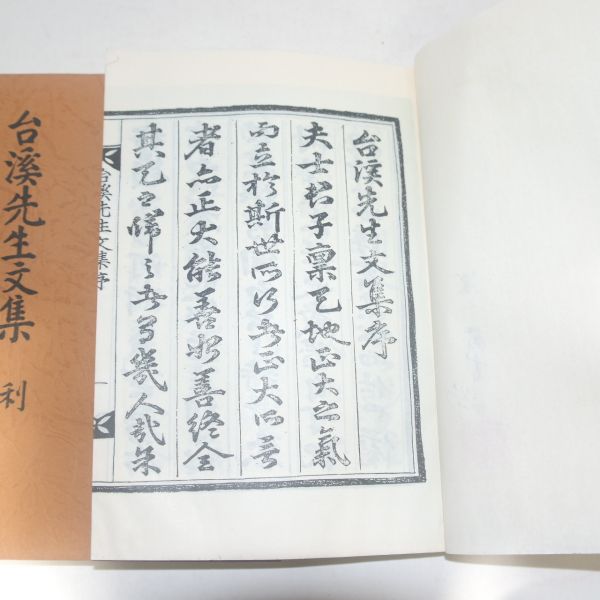 台溪先生文集序
夫士君子禀天地正大之氣
而立於斯世所行者正大所言
者亦正大能善始善終全
其天之 之者爲幾人哉
台溪先生文集序 一
台溪先生文集 利